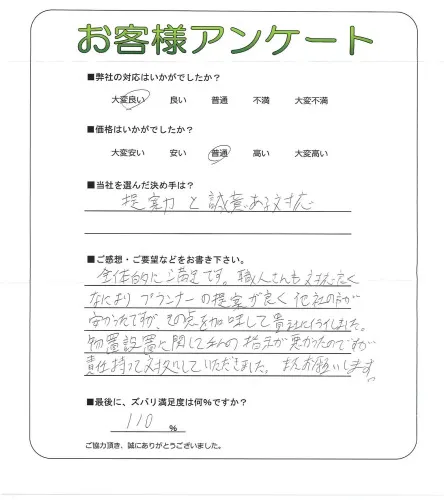 お客様アンケート
■弊社の対応はいかがでしたか?
大変良い 良い 普通 不満 大変不満
■価格はいかがでしたか?
大変安い 安い 普通 高い 大変高い
■当社を選んだ決め手は?
提案力と誠意ある対応
■ご感想・ご要望などをお書き下さい。
全体的に満足です。職人さんも対応良く
なによりプランナーの提案が良く他社の方が
安かったですが、その点を加味して貴社にイライしました。
物置設置に関して私の指示が悪かったのですが
責任持って対処していただきました。またお願いします
■最後に、ズバリ満足度は何%ですか?
110 %
ご協力頂き、誠にありがとうございました。